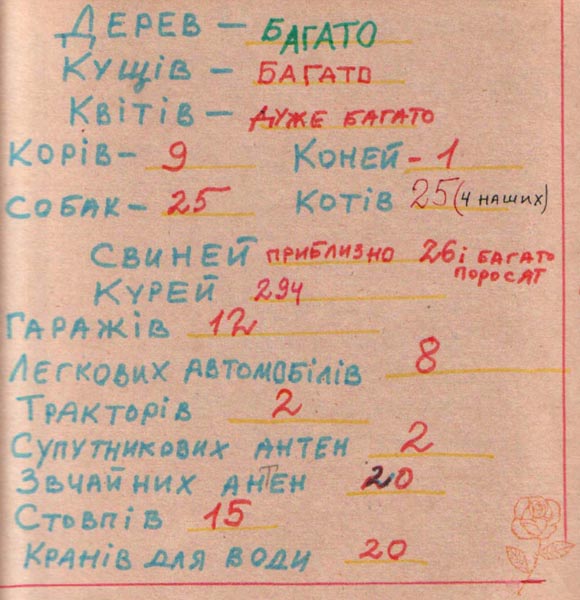 Дерев — багато
Кущів — багато
Квітів — дуже багато
Корів — 9 Коней - 1
Собак - 25 Котів 25 (4 наших)
Свиней приблизно 26 і багато
поросят
Курей 294
Гаражів 12
Легкових автомобілів 8
Тракторів 2
Супутникових антен 2
Звчайних антен 20
Стовпів 15
Кранів для води 20